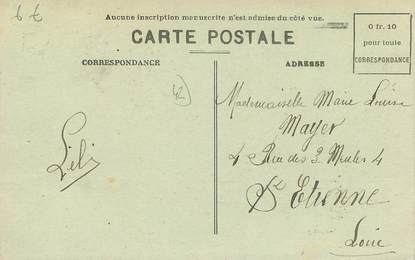 Aucune inscription manuscrite n'est admise du côté vue.
CARTE POSTALE
0 fr. 10
pour toute
CORRESPONDANCE
CORRESPONDANCE
ADRESSE
42
Mademoiselle Marie Louise
Mayer
4 Rue des 3 Meules 4
St Etienne
Loire
Lili